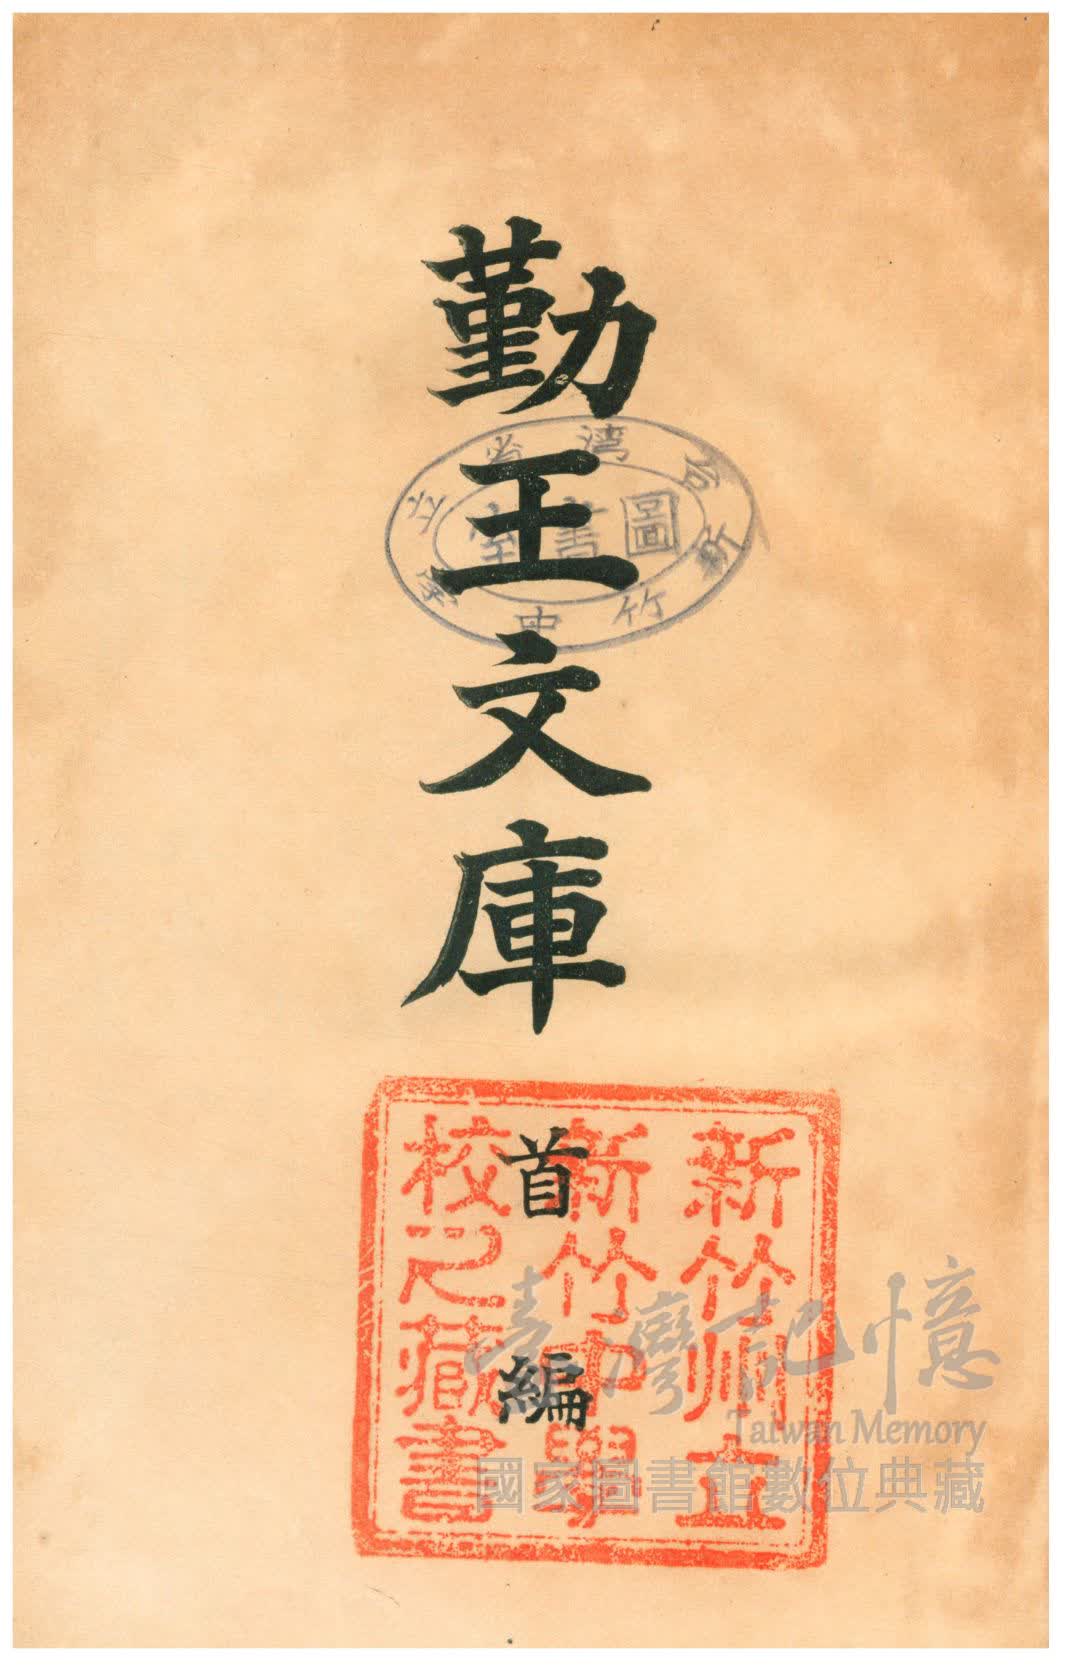 勤王文庫
首編
台灣省立新竹中學
圖書室
新竹州立
新竹中學
校之藏書
臺灣記憶
Taiwan Memory
國家圖書館數位典藏